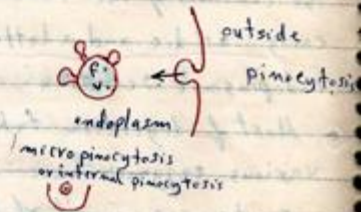 outside
pinocytosis
f.
v.
endoplasm
micropinocytosis
or internal pinocytosis